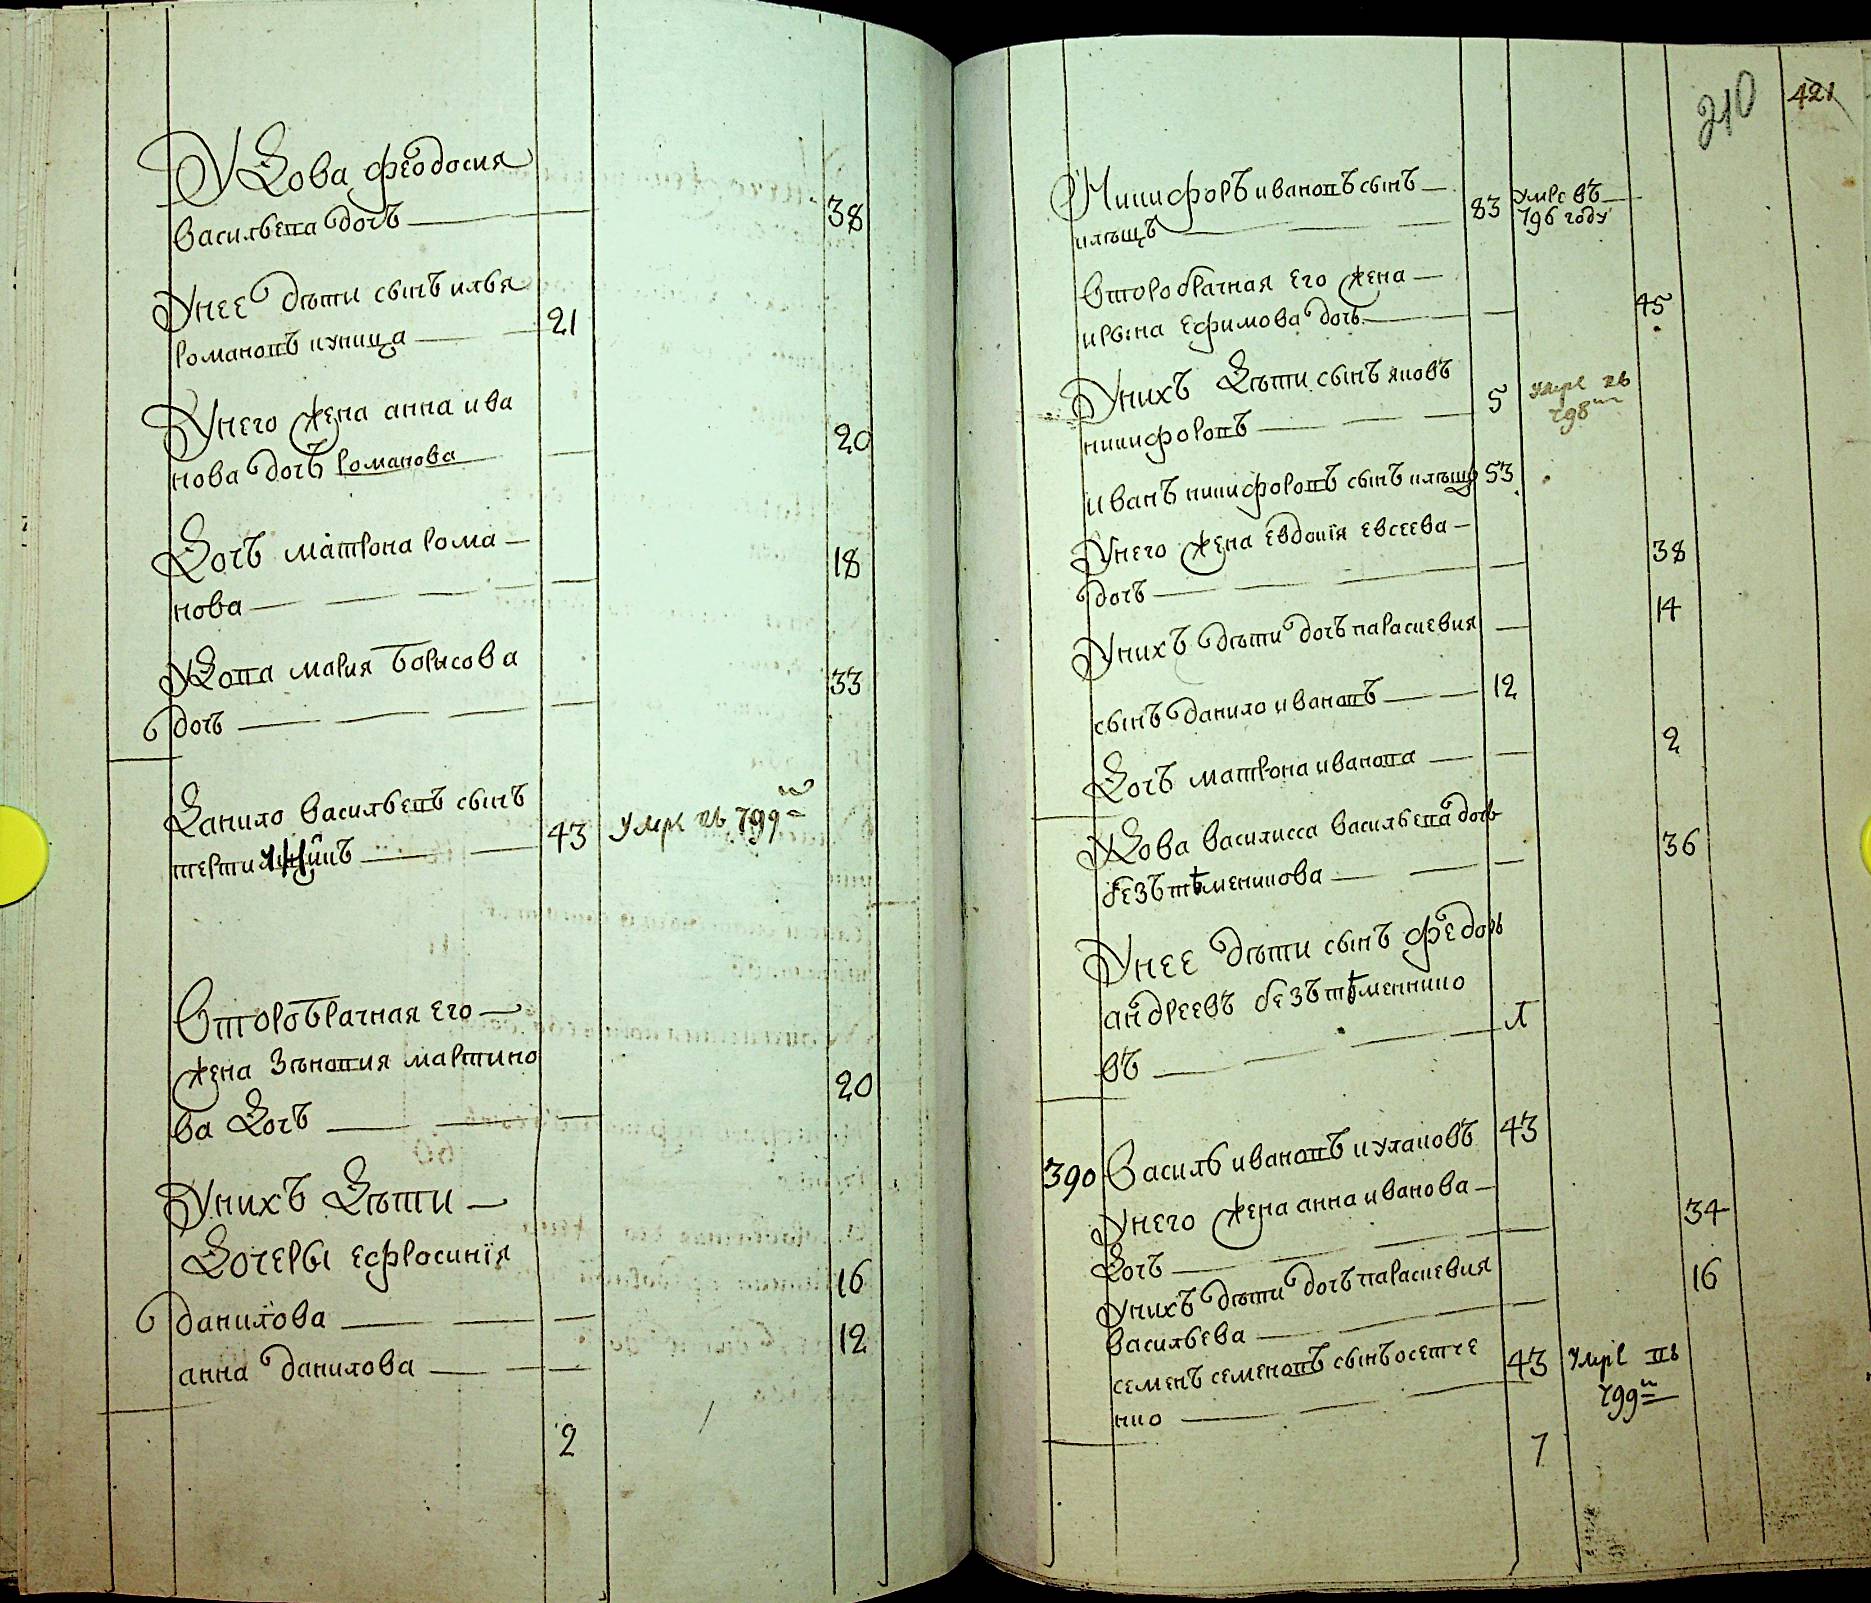 Вдова феодосия
васильева дочь 38
Унее дѣти сынъ илья
романовъ купица 21
Унего жена анна ива
нова дочь романова 20
Дочь матрона рома
нова 18
Вдова мария борисова
дочь 33
Данило васильевъ сынъ
43 умре въ 799м
Второбрачная его
жена зѣновия мартино
ва дочь 20
Унихъ дѣти
дочеры ефросинїя
данилова 16
анна данилова 12
2
210 421
Никифоръ ивановъ сынъ
клѣщъ 83 умре въ 796 году
второбрачная его жена
ирына ефимова дочь 45
Унихъ дѣти сынъ яковъ
никифоровъ 5 умре въ 798м
иванъ никифоровъ сынъ клѣщъ 53
Унего жена евдокїя евсеева
дочь 38
Унихъ дѣти дочь параскевия 14
сынъ данило ивановъ 12
Дочь матрона иванова 2
Вдова василисса васильева дочь
безътѣменикова 36
Унее дѣти сынъ федоръ
андреевъ безътѣменнико
въ
390 Василь ивановъ кулаковъ 43
Унего жена анна иванова
дочь 34
Унихъ дѣти дочь параскевия
васильева 16
семенъ семеновъ сынъ осетче
нко 43 умре въ 799м
7